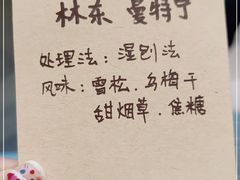 林东 曼特宁
处理法：湿刨法
风味：雪松．乌梅干
甜烟草．焦糖